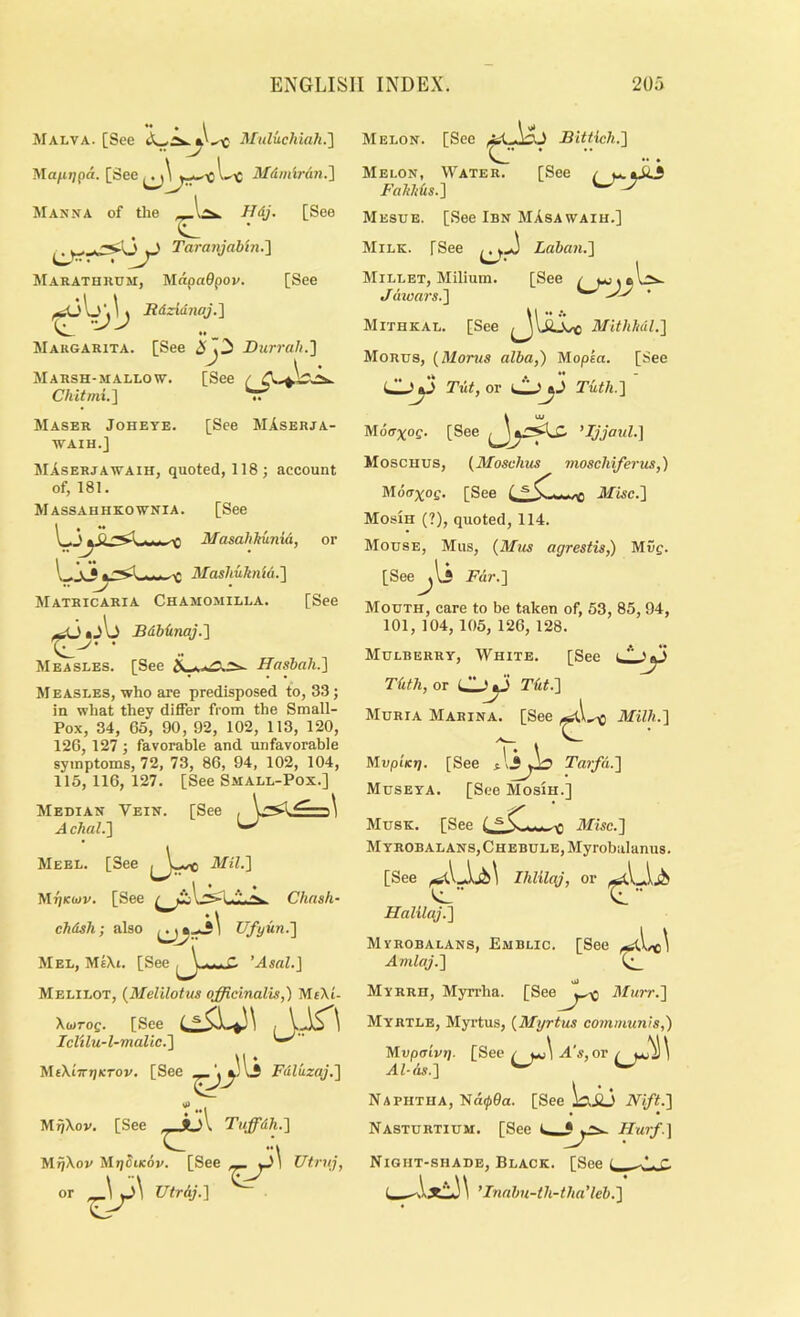 ENGLISH INDEX. 205
MALVA. [See ملوخية Mulúchiah.]
Μαμηρά. [See ماميران Mámírán.]
MANNA of the حاج Háj. [See
ترنجبين Taranjabín.]
MARATHRUM, Μάραθρον. [See
رازيانج Rázíánaj.]
MARGARITA. [See درة Durrah.]
MARSH-MALLOW. [See خطمي
Chitmí.]
MASER JOHEYE. [See MÁSERJA-
WAIH.]
MÁSERJAWAIH, quoted, 118; account
of, 181.
MASSAHHKOWNIA. [See
مسحقونيا Masahkúniá, or
مسحوقنيا Mashúkniá.]
MATRICARIA CHAMOMILLA. [See
بابونج Bábúnaj.]
MEASLES. [See حصبة Hasbah.]
MEASLES, who are predisposed to, 33;
in what they differ from the Small-
Pox, 34, 65, 90, 92, 102, 113, 120,
126, 127; favorable and unfavorable
symptoms, 72, 73, 86, 94, 102, 104,
115, 116, 127. [See SMALL-POX.]
MEDIAN VEIN. [See اكحل
Achal.]
MEEL. [See ميل Míl.]
Μήκων. [See خشخاش Chash-
chásh; also افيون Ufyún.]
MEL, Μέλι. [See عسل 'Asal.]
MELILOT, (Melilotus officinalis,) Μελί-
λωτος. [See اكليل الملك
Iclílu-l-malic.]
Μελίπηκτον. [See فالوذج Fálúzaj.]
Μῆλον. [See تفاح Tuffáh.]
Μῆλον Μηδικόν. [See اترج Utruj,
or اتراج Utráj.]
MELON. [See بطيخ Bittích.]
MELON, WATER. [See فقوس
Fakkús.]
MESUE. [See IBN MÁSAWAIH.]
MILK. [See لبن Laban.]
MILLET, Milium. [See جاورس
Jáwars.]
MITHKAL. [See مثقال Mithkál.]
MORUS, (Morus alba,) Μορέα. [See
توت Tút, or توث Túth.]
Μόσχος. [See عجاجول 'Ijjaul.]
MOSCHUS, (Moschus moschiferus,)
Μόσχος. [See مسك Misc.]
MOSÍH (?), quoted, 114.
MOUSE, Mus, (Mus agrestis,) Μῦς.
[See فار Fár.]
MOUTH, care to be taken of, 53, 85, 94,
101, 104, 105, 126, 128.
MULBERRY, WHITE. [See توث
Túth, or توت Tút.]
MURIA MARINA. [See ملح Milh.]
Μυρίκη. [See طرفاء Tarfá.]
MUSEYA. [See MOSÍH.]
MUSK. [See مسك Misc.]
MYROBALANS, CHEBULE, Myrobalanus.
[See اهليلج Ihlílaj, or هليلج
Halílaj.]
MYROBALANS, EMBLIC. [See املج
Amlaj.]
MYRRH, Myrrha. [See مر Murr.]
MYRTLE, Myrtus, (Myrtus communis,)
Μυρσίνη. [See اس A's, or الاس
Al-ás.]
NAPHTHA, Νάφθα. [See نفط Nift.]
NASTURTIUM. [See حرف Hurf.]
NIGHT-SHADE, BLACK. [See عنب
الثعلب 'Inabu-th-tha'leb.]